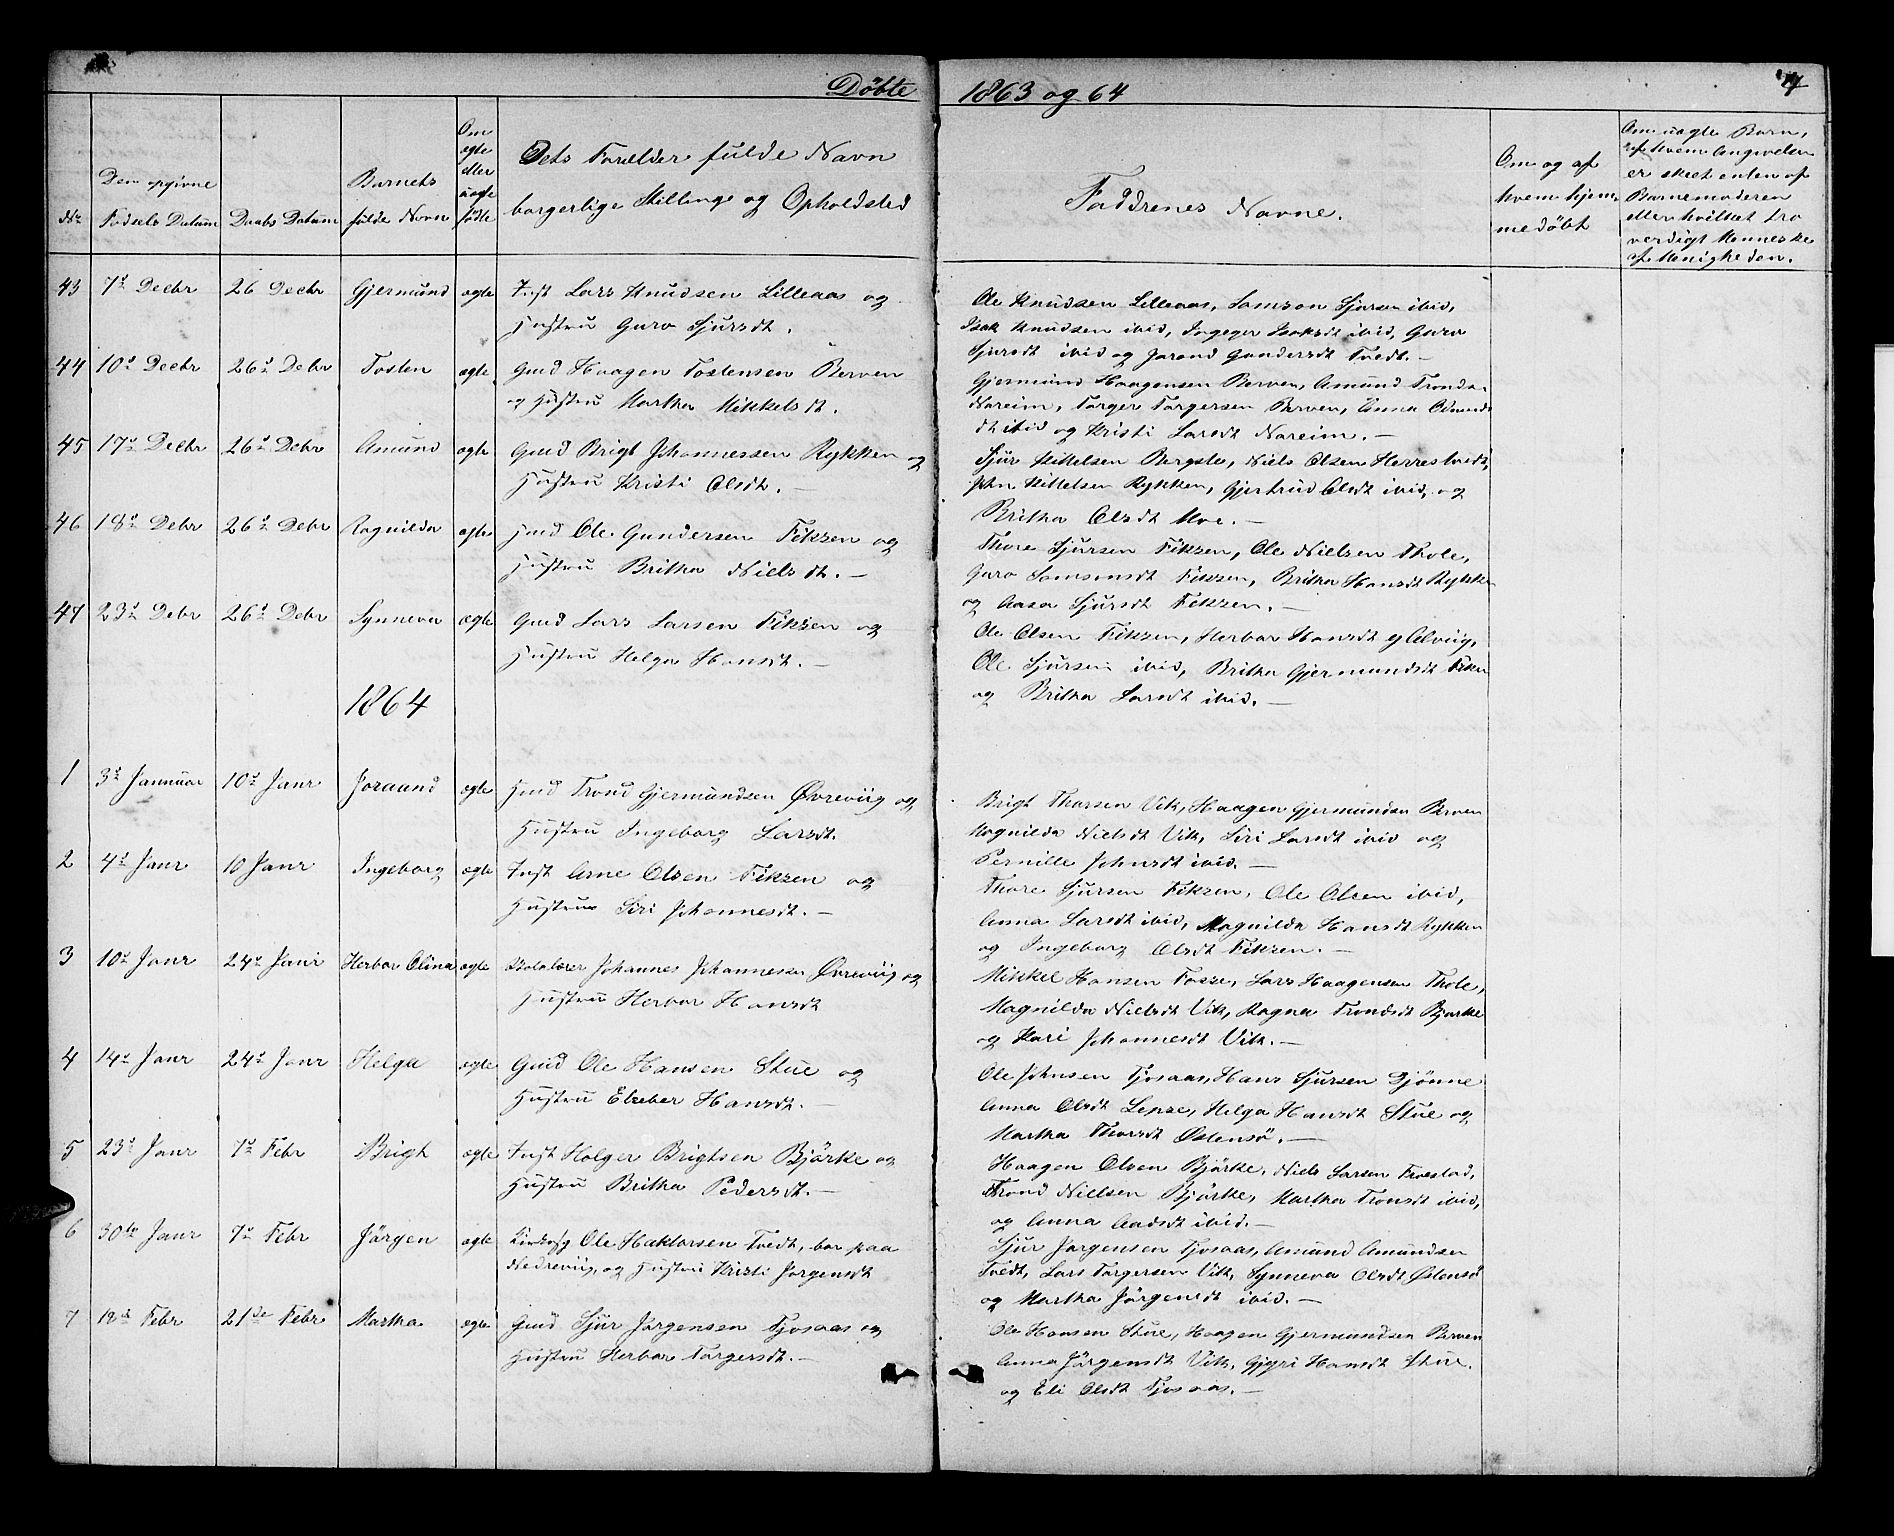 Døbte
1863 og 64
No
Den opgivne
Fødsels Datum
Daabs Datum
Barnets
fulde Navn
Om
ægte
eller
uægte
fødte
Dets Forælder fulde Navn
borgerlige Stillings og Opholdsted
Faddrenes Navne.
Om og af
hvem hjem-
medøbt
Om uægte Barn,
af hvem Angivelsen
er skeet enten af
Barnemoderen
eller hvilket tro
verdigt Menneske
af Menigheden.
43 7d Decbr 26 Decbr Gjermund ægte Inst Lars Knudsen Lilleaas og
Hustru Guro Sjursdt.
Ole Knudsen Lilleaas, Samson Sjursen ibid,
Isak Knudsen ibid, Ingeger Isaksdt ibid, Guro
Sjursdt ibid og Jorand Gundersdt Tvedt.—
44 10d Decbr 26d Debr Tosten ægte Gmd Haagen Tostensen Berven
og Hustru Martha Mikkelsdt.
Gjermund Haagensen Berven, Amund Tronds.
Nareim, Torger Torgersen Berven, Anna
dt ibid og Kristi Larsdt Nareim.—
45 17d Decbr 26d Debr Amund ægte Gmd Brigt Johannessen Rykken og
Hustru Kristi Olsdt.—
Sjur Kittelsen Bergste, Niels Olsen Herrestvedt,
John Kittelsen Rykken, Gjertrud Olsdt ibid, og
Britha Olsdt Moe.—
46 18d Debr 26d Debr Ragnilda ægte Gmd Ole Gundersen Fikzen og
Hustru Britha Nielsdt.—
Thore Sjursen Fikzen, Ole Nielsen Thole,
Guro Samsonsdt Fikzen, Britha Hansdt Rykken
og Aasa Sjursdt Fikzen.—
47 23d Debr 26d Debr Synneva ægte Gmd Lars Larsen Fikzen og
Hustru Helga Hansdt.—
Ole Olsen Fikzen, Herbor Hansdt Alvig,
Ole Sjursen ibid, Britha Gjermundsdt Fikzen
og Britha Larsdt ibid.—
1864
1 3d Januar 10d Janr Joraand ægte Gmd Trond Gjermundsen Øvreviig og
Hustru Ingeborg Larsdt.
Brigt Thorsen Vik, Haagen Gjermundsen Berven
Magnilda Nielsdt Vik, Siri Larsdt ibid og
Pernille Johnsdt ibid.—
2 4d Janr 10 Janr Ingeborg ægte Inst Arne Olsen Fikzen og
Hustrue Siri Johannesdt.—
Thore Sjursen Fikzen, Ole Olsen ibid,
Anna Larsdt ibid, Magnilda Hansdt Rykken
og Ingeborg Olsdt Fikzen.—
3 10d Janr 24d Janr Herbor Olina ægte Skolelærer Johannes Johannesen Øvreviig og
Hustru Herbor Hansdt
Mikkel Hansen Fosse, Lars Haagensen Thole,
Magnilda Nielsdt Vik, Ragna Trondsdt Bjørke
og Kari Johannesdt Vik.—
4 14d Janr 24d Janr Helga ægte Gmd Ole Hansen Stue og
Hustru Elzeber Hansdt.—
Ole Johnsen Tjosaas, Hans Sjursen Djønne
Anna Olsdt Lepse, Helga Hansdt Stue og
Martha Thorsdt Østensø.—
5 23d Janr 7d Febr Brigt ægte Inst Holger Brigtsen Bjørke og
Hustru Britha Pedersdt.—
Haagen Olsen Bjørke, Niels Larsen Froestad,
Trond Nielsen Bjørke, Martha Tronsdt ibid,
og Anna Aadsdt ibid.—
6 30te Janr 7d Febr Jörgen ægte Ole Haktorsen Tvedt, bor paa
Nedreviig, og Hustru Kristi Jorgensdt
Sjur Jorgensen Tjosaas, Amund Amundsen
Tvedt, Lars Torgersen Vik, Synneva Olsdt Østensø
og Martha Jörgensdt ibid.—
7 12d Febr 21de Febr Martha ægte Gmd Sjur Jørgensen Tjosaas og
Hustru Herbor Torgersdt.—
Ole Hansen Stue, Haagen Gjermundsen Berven
Anna Jörgensdt Vik, Gjyri Hansdt Stue.
og Eli Olsdt Tjosaas.—